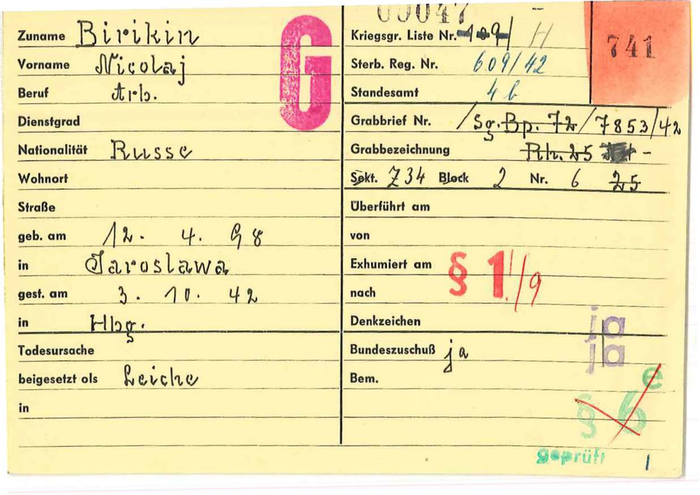 00047
741
G
Zuname Birikin
Vorname Nicolaj
Beruf Arb.
Dienstgrad
Nationalität Russe
Wohnort
Straße
geb. am 12. 4. 98
in Jaroslawa
gest. am 3. 10. 42
in Hbg.
Todesursache
beigesetzt als Leiche
in
Kriegsgr. Liste Nr. 109/ H
Sterb. Reg. Nr. 609/42
Standesamt 4b
Grabbrief Nr. /Sg. Bp. 72/7853/42
Grabbezeichnung Rh. 25
Sekt. Z34 Block 2 Nr. 6 25
Überführt am
von
Exhumiert am
§ 1 /9
nach
Denkzeichen ja
ja
Bundeszuschuß ja
Bem.
e
§ 6
geprüft 1